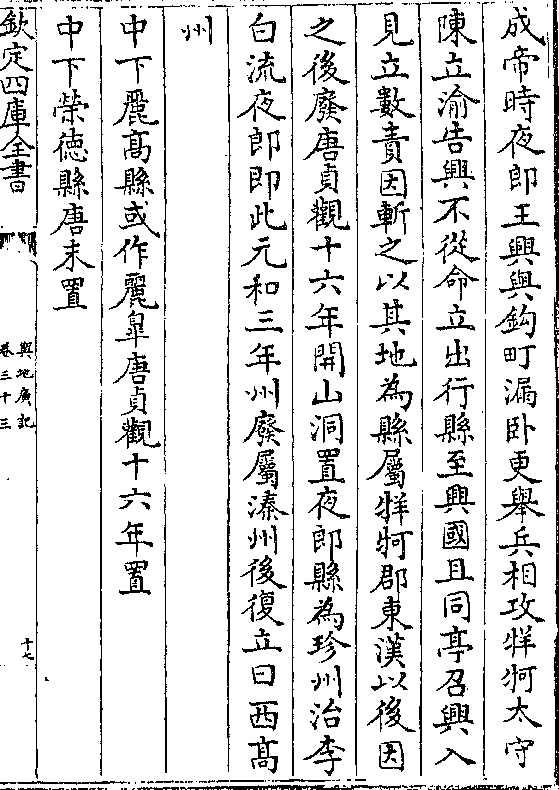 成帝時夜郎王興與鈎町漏卧更舉兵相攻牂牁太守
陳立渝告興不從命立出行縣至興國且同亭召興入
見立數責因斬之以其地為縣屬牂牁郡東漢以後因
之後廢唐貞觀十六年開山洞置夜郎縣為珍州治李
白流夜郎即此元和三年州廢屬溱州後復立曰西髙
州
中下麗髙縣或作麗臯唐貞觀十六年置
中下榮徳縣唐末置
欽定四庫全書
輿地廣記
卷三十三
十七